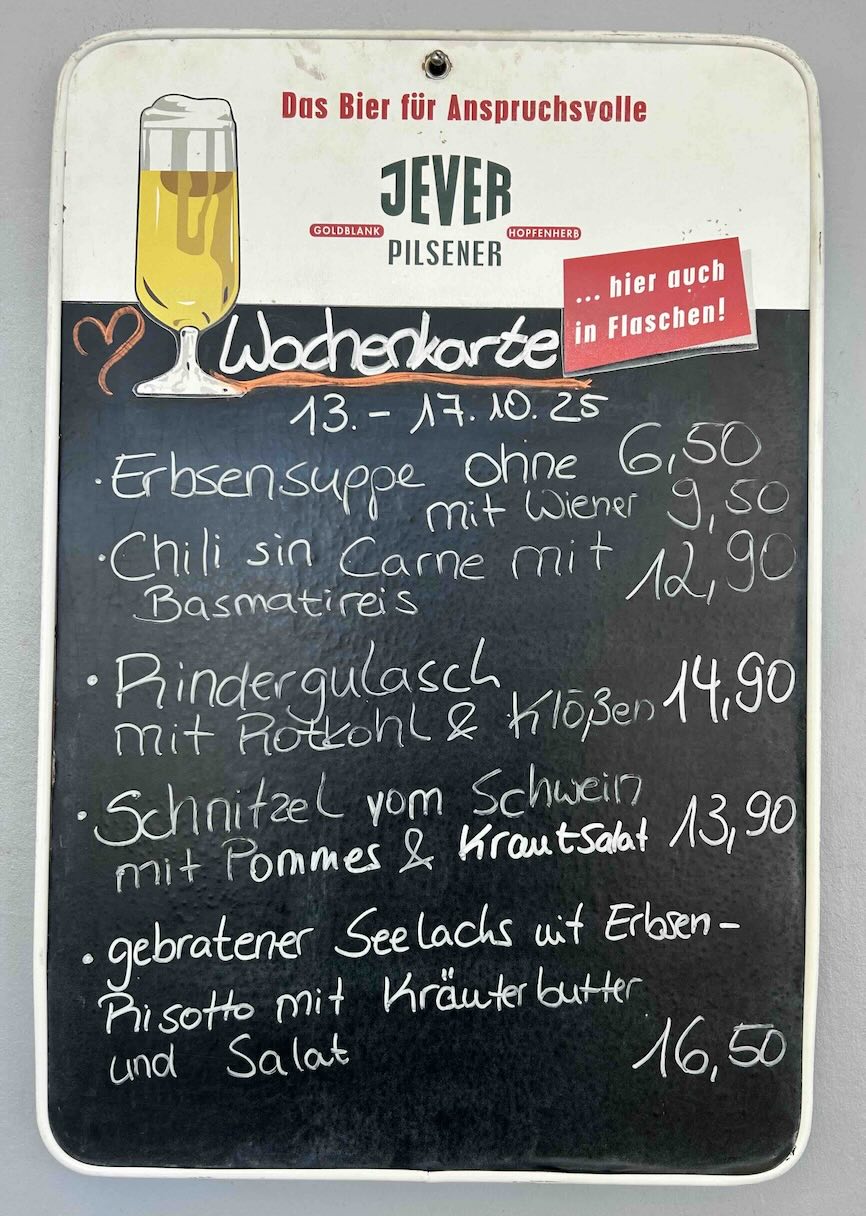 Das Bier für Anspruchsvolle
JEVER
GOLDBLANK HOPFENHERB
PILSENER
... hier auch
in Flaschen!
Wochenkarte
13. - 17.10.25
· Erbsensuppe ohne 6,50
mit Wiener 9,50
· Chili sin Carne mit 12,90
Basmatireis
· Rindergulasch
mit Rotkohl & Klößen 14,90
· Schnitzel vom Schwein
mit Pommes & Krautsalat 13,90
· gebratener Seelachs mit Erbsen-
Risotto mit Kräuterbutter
und Salat 16,50